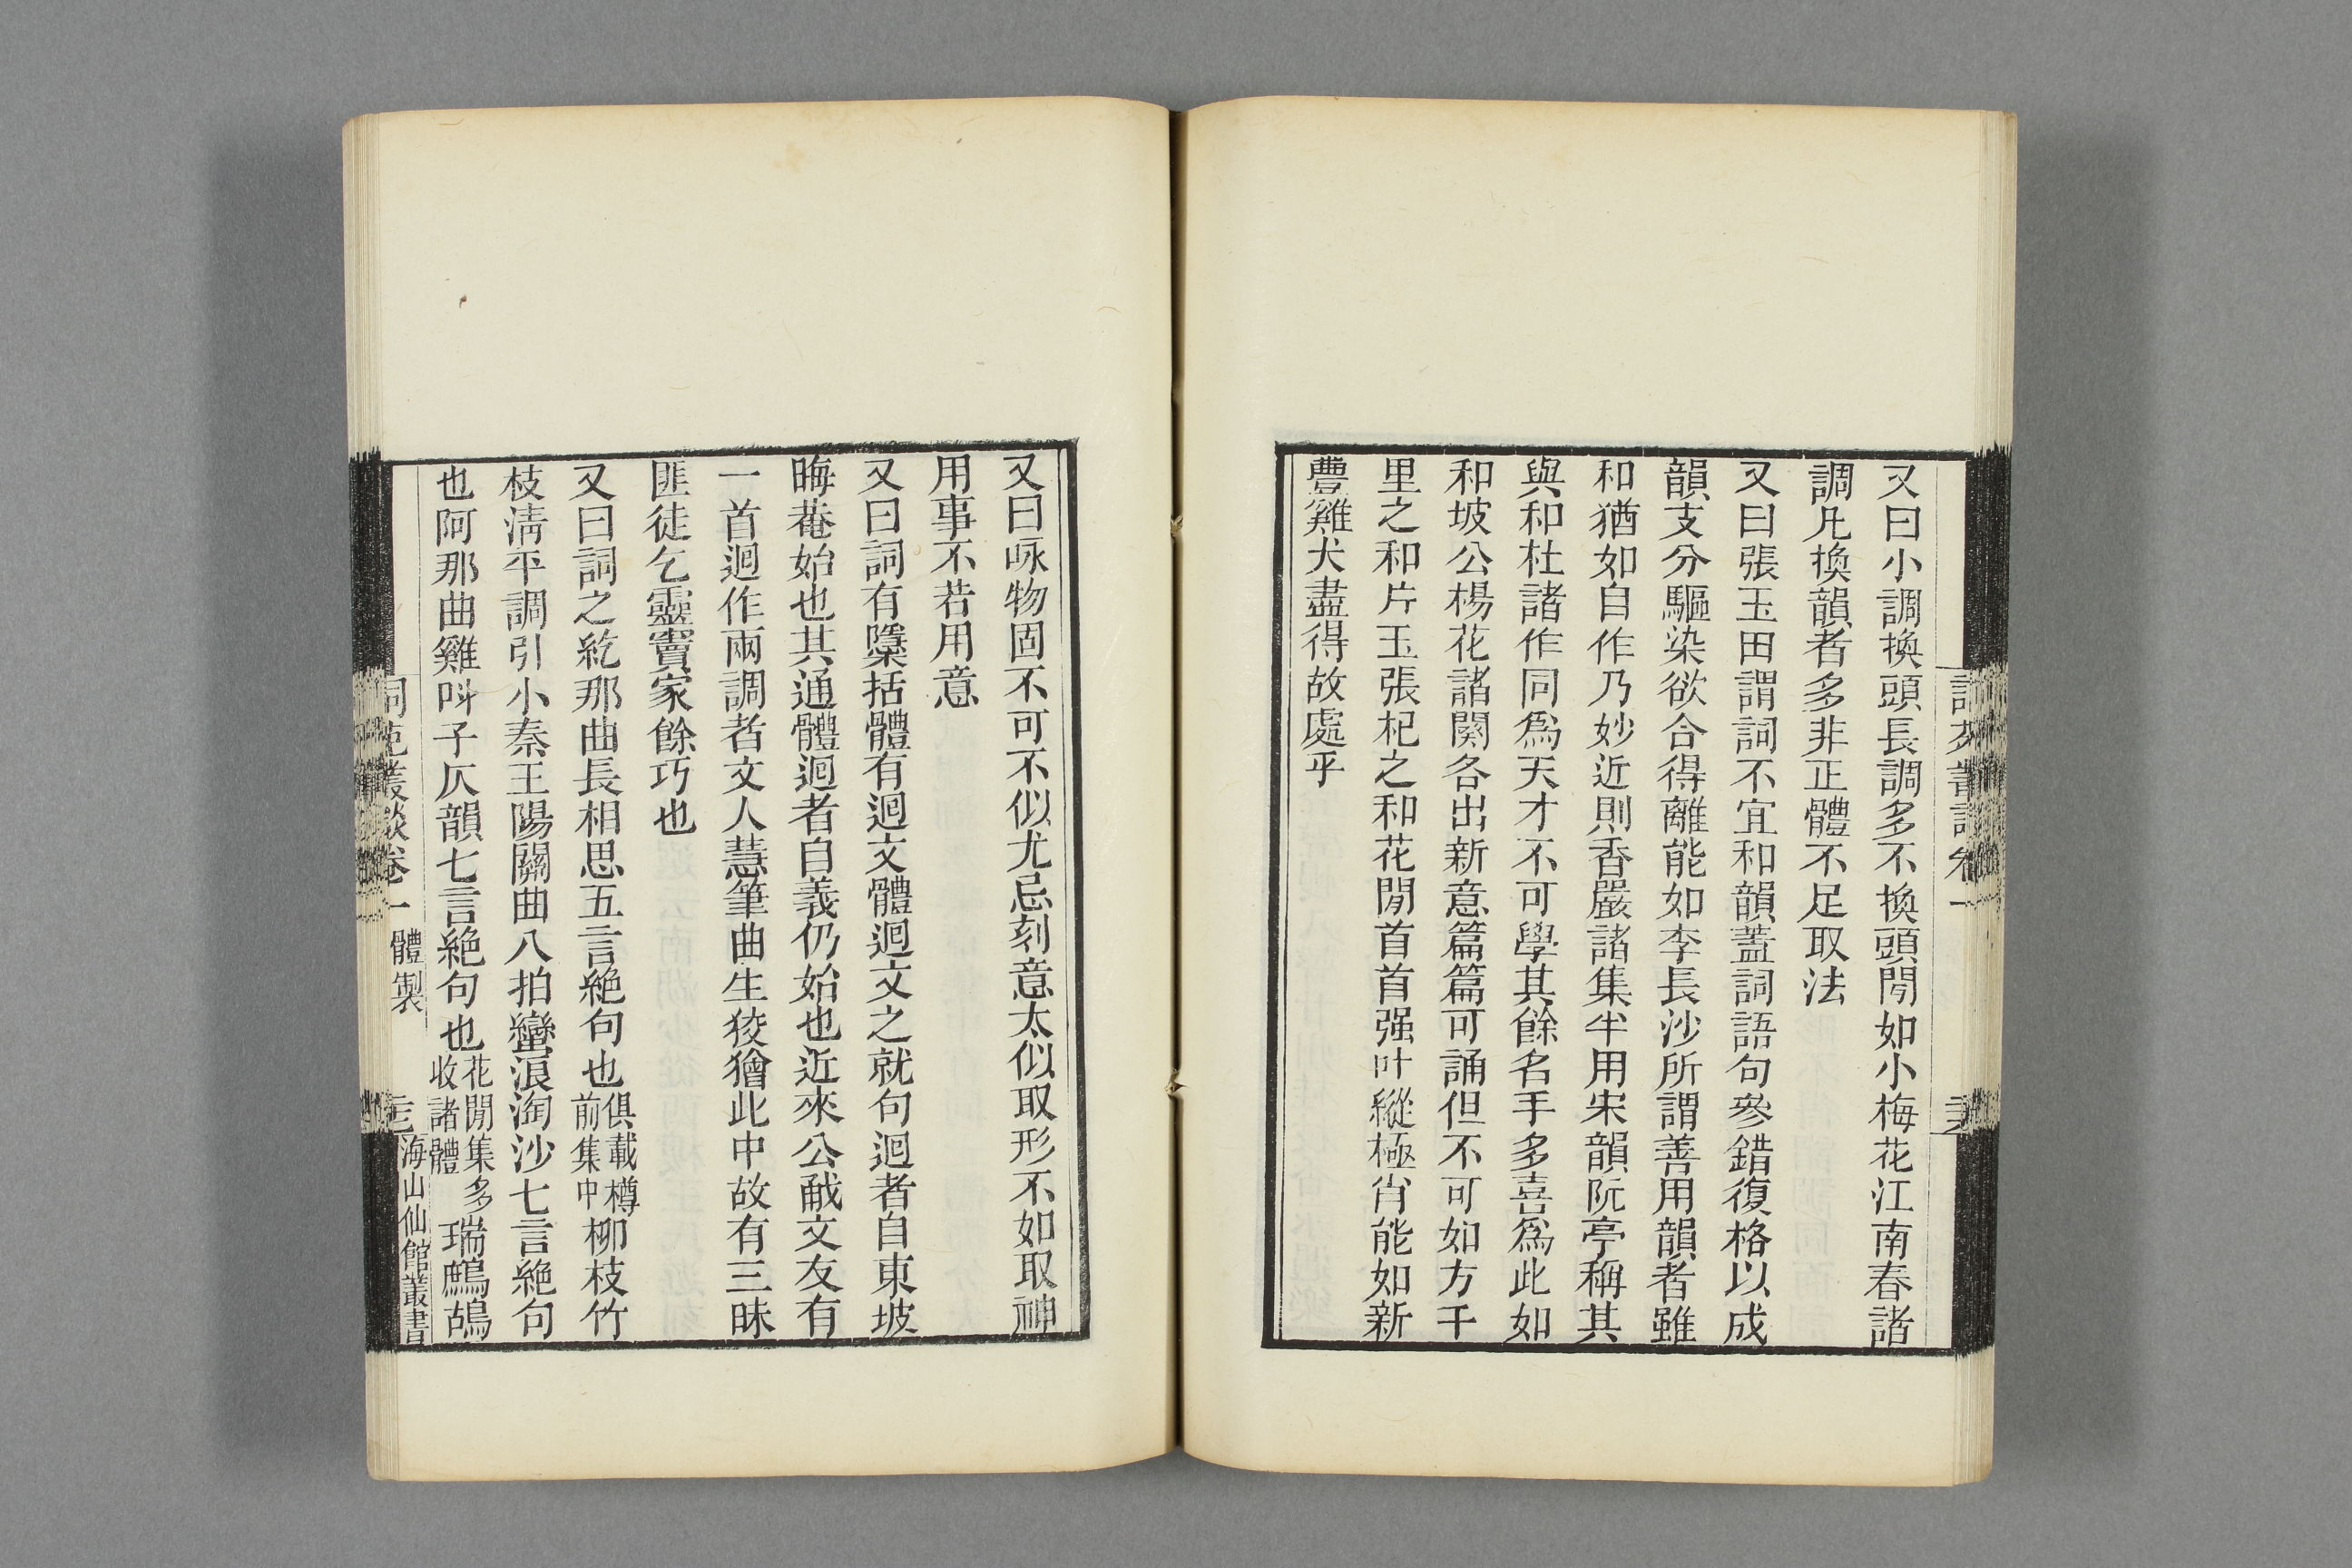 又曰小調換頭長調多不換頭閒如小梅花江南春諸
調凡換韻者多非正體不足取法
又曰張玉田謂詞不宜和韻蓋詞語句參錯復格以成
韻支分驅染欲合得離能如李長沙所謂善用韻者雖
和猶如自作乃妙近則香嚴諸集半用宋韻阮亭稱其
與和杜諸作同爲天才不可學其餘名手多喜爲此如
和坡公楊花諸闋各出新意篇篇可誦但不可如方千
里之和片玉張杞之和花閒首首强叶縱極肖能如新
豐雞犬盡得故處乎
又曰咏物固不可不似尤忌刻意太似取形不如取神
用事不若用意
又曰詞有檃括體有迴文體迴文之就句迴者自東坡
晦菴始也其通體迴者自義仍始也近來公䤋文友有
一首迴作兩調者文人慧筆曲生狡獪此中故有三昧
匪徒乞靈竇家餘巧也
又曰詞之紇那曲長相思五言絶句也俱載樽前集中柳枝竹
枝清平調引小秦王陽關曲八拍蠻浪淘沙七言絶句
也阿那曲雞呌子仄韻七言絶句也花閒集多收諸體瑞鷓鴣
詞苑叢談卷一 體製 海山仙館叢書